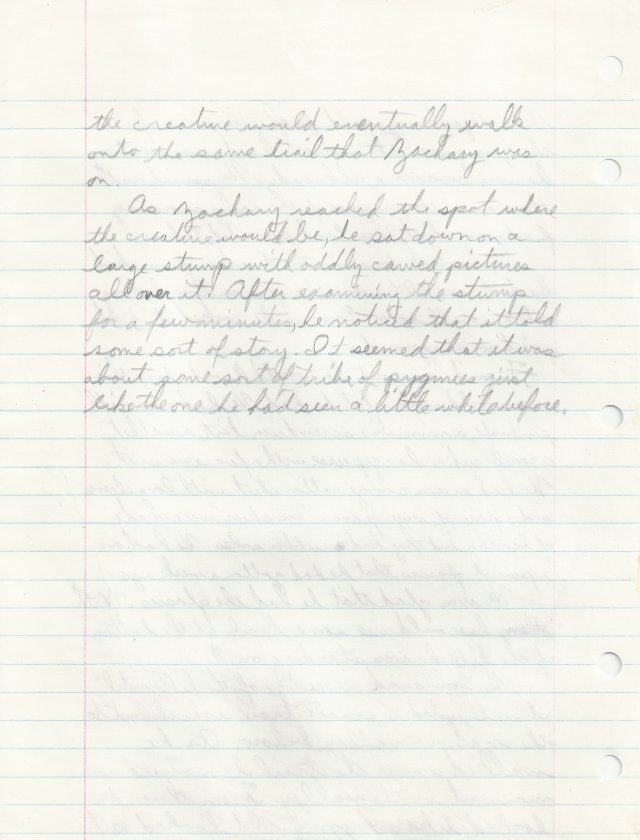 the creature would eventually walk
onto the same trail that Zachary was
on.
As Zachary reached the spot where
the creature would be, he sat down on a
large stump with oddly carved pictures
all over it. After examining the stump
for a few minutes, he noticed that it told
some sort of story. It seemed that it was
about some sort of tribe of pygmies just
like the one he had seen a little while before.